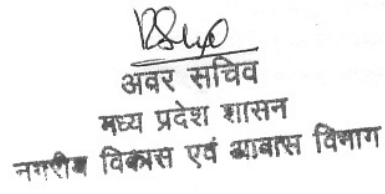 अवर सचिव
मध्य प्रदेश शासन
नगरीय विकास एवं आवास विभाग